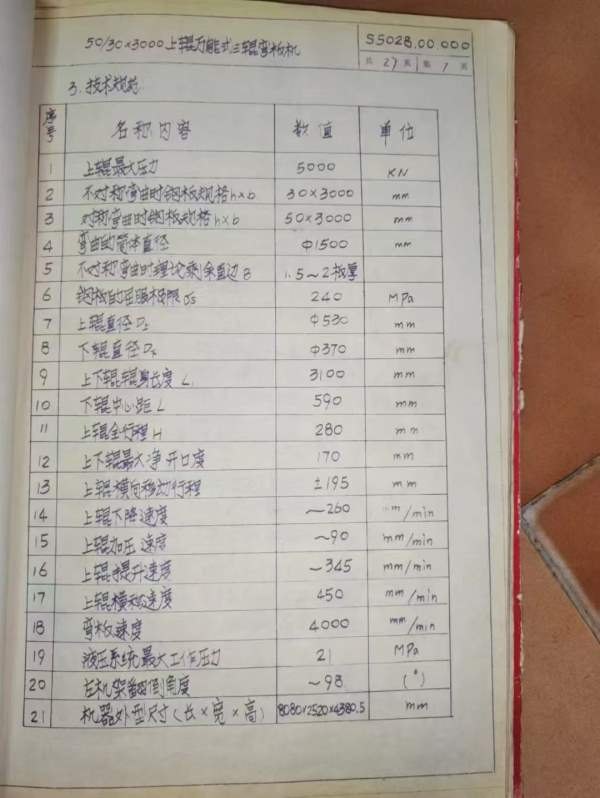 50/30×3000上辊万能式三辊弯板机
SS028.00.000
共 27 页 第 7 页
3. 技术规范
序号 名称内容 数值 单位
1 上辊最大压力 5000 KN
2 不对称弯曲时钢板规格h×b 30×3000 mm
3 对称弯曲时钢板规格h×b 50×3000 mm
4 弯曲的筒体直径 Φ1500 mm
5 不对称弯曲时理论剩余直边B 1.5~2板厚
6 钢板的屈服极限σs 240 MPa
7 上辊直径D Φ530 mm
8 下辊直径D Φ370 mm
9 上下辊辊身长度 L 3100 mm
10 下辊中心距 L 590 mm
11 上辊全行程 H 280 mm
12 上下辊最大净开口度 170 mm
13 上辊横向移动行程 ±195 mm
14 上辊下降速度 ~260 mm/min
15 上辊加压速度 ~90 mm/min
16 上辊提升速度 ~345 mm/min
17 上辊横移速度 450 mm/min
18 弯板速度 4000 mm/min
19 液压系统最大工作压力 21 MPa
20 右机架翻倒角度 ~98 (°)
21 机器外型尺寸(长×宽×高) 8080×2520×4380.5 mm